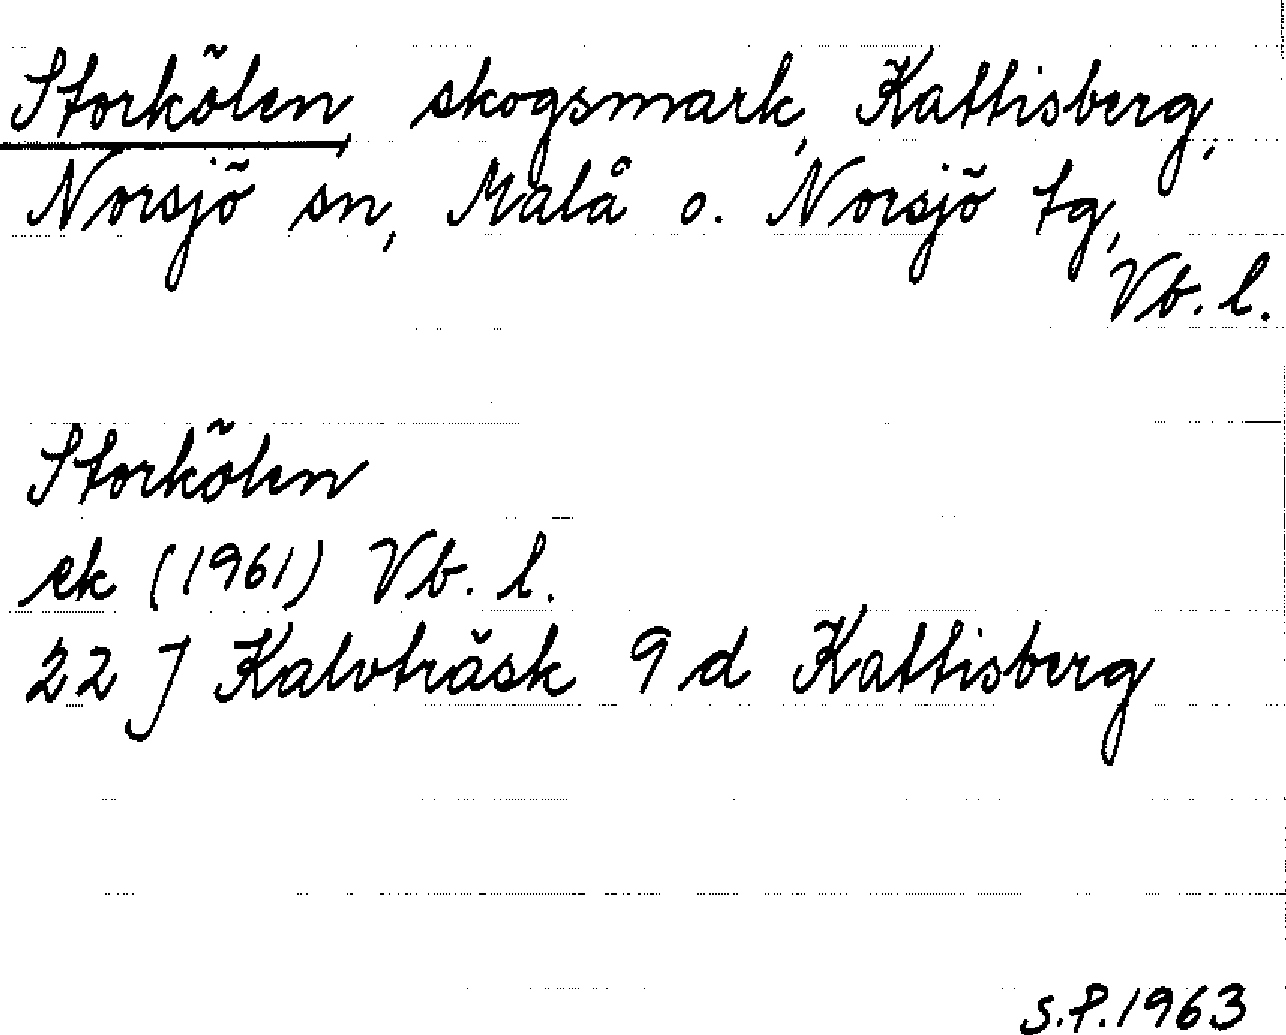 Storkölen, skogsmark, Kattisberg,
Norsjö sn, Malå o. Norsjö tg,
Vb. l.
Storkölen
ek (1961) Vb. l.
22 J Kalvträsk 9 d Kattisberg
S.P. 1963